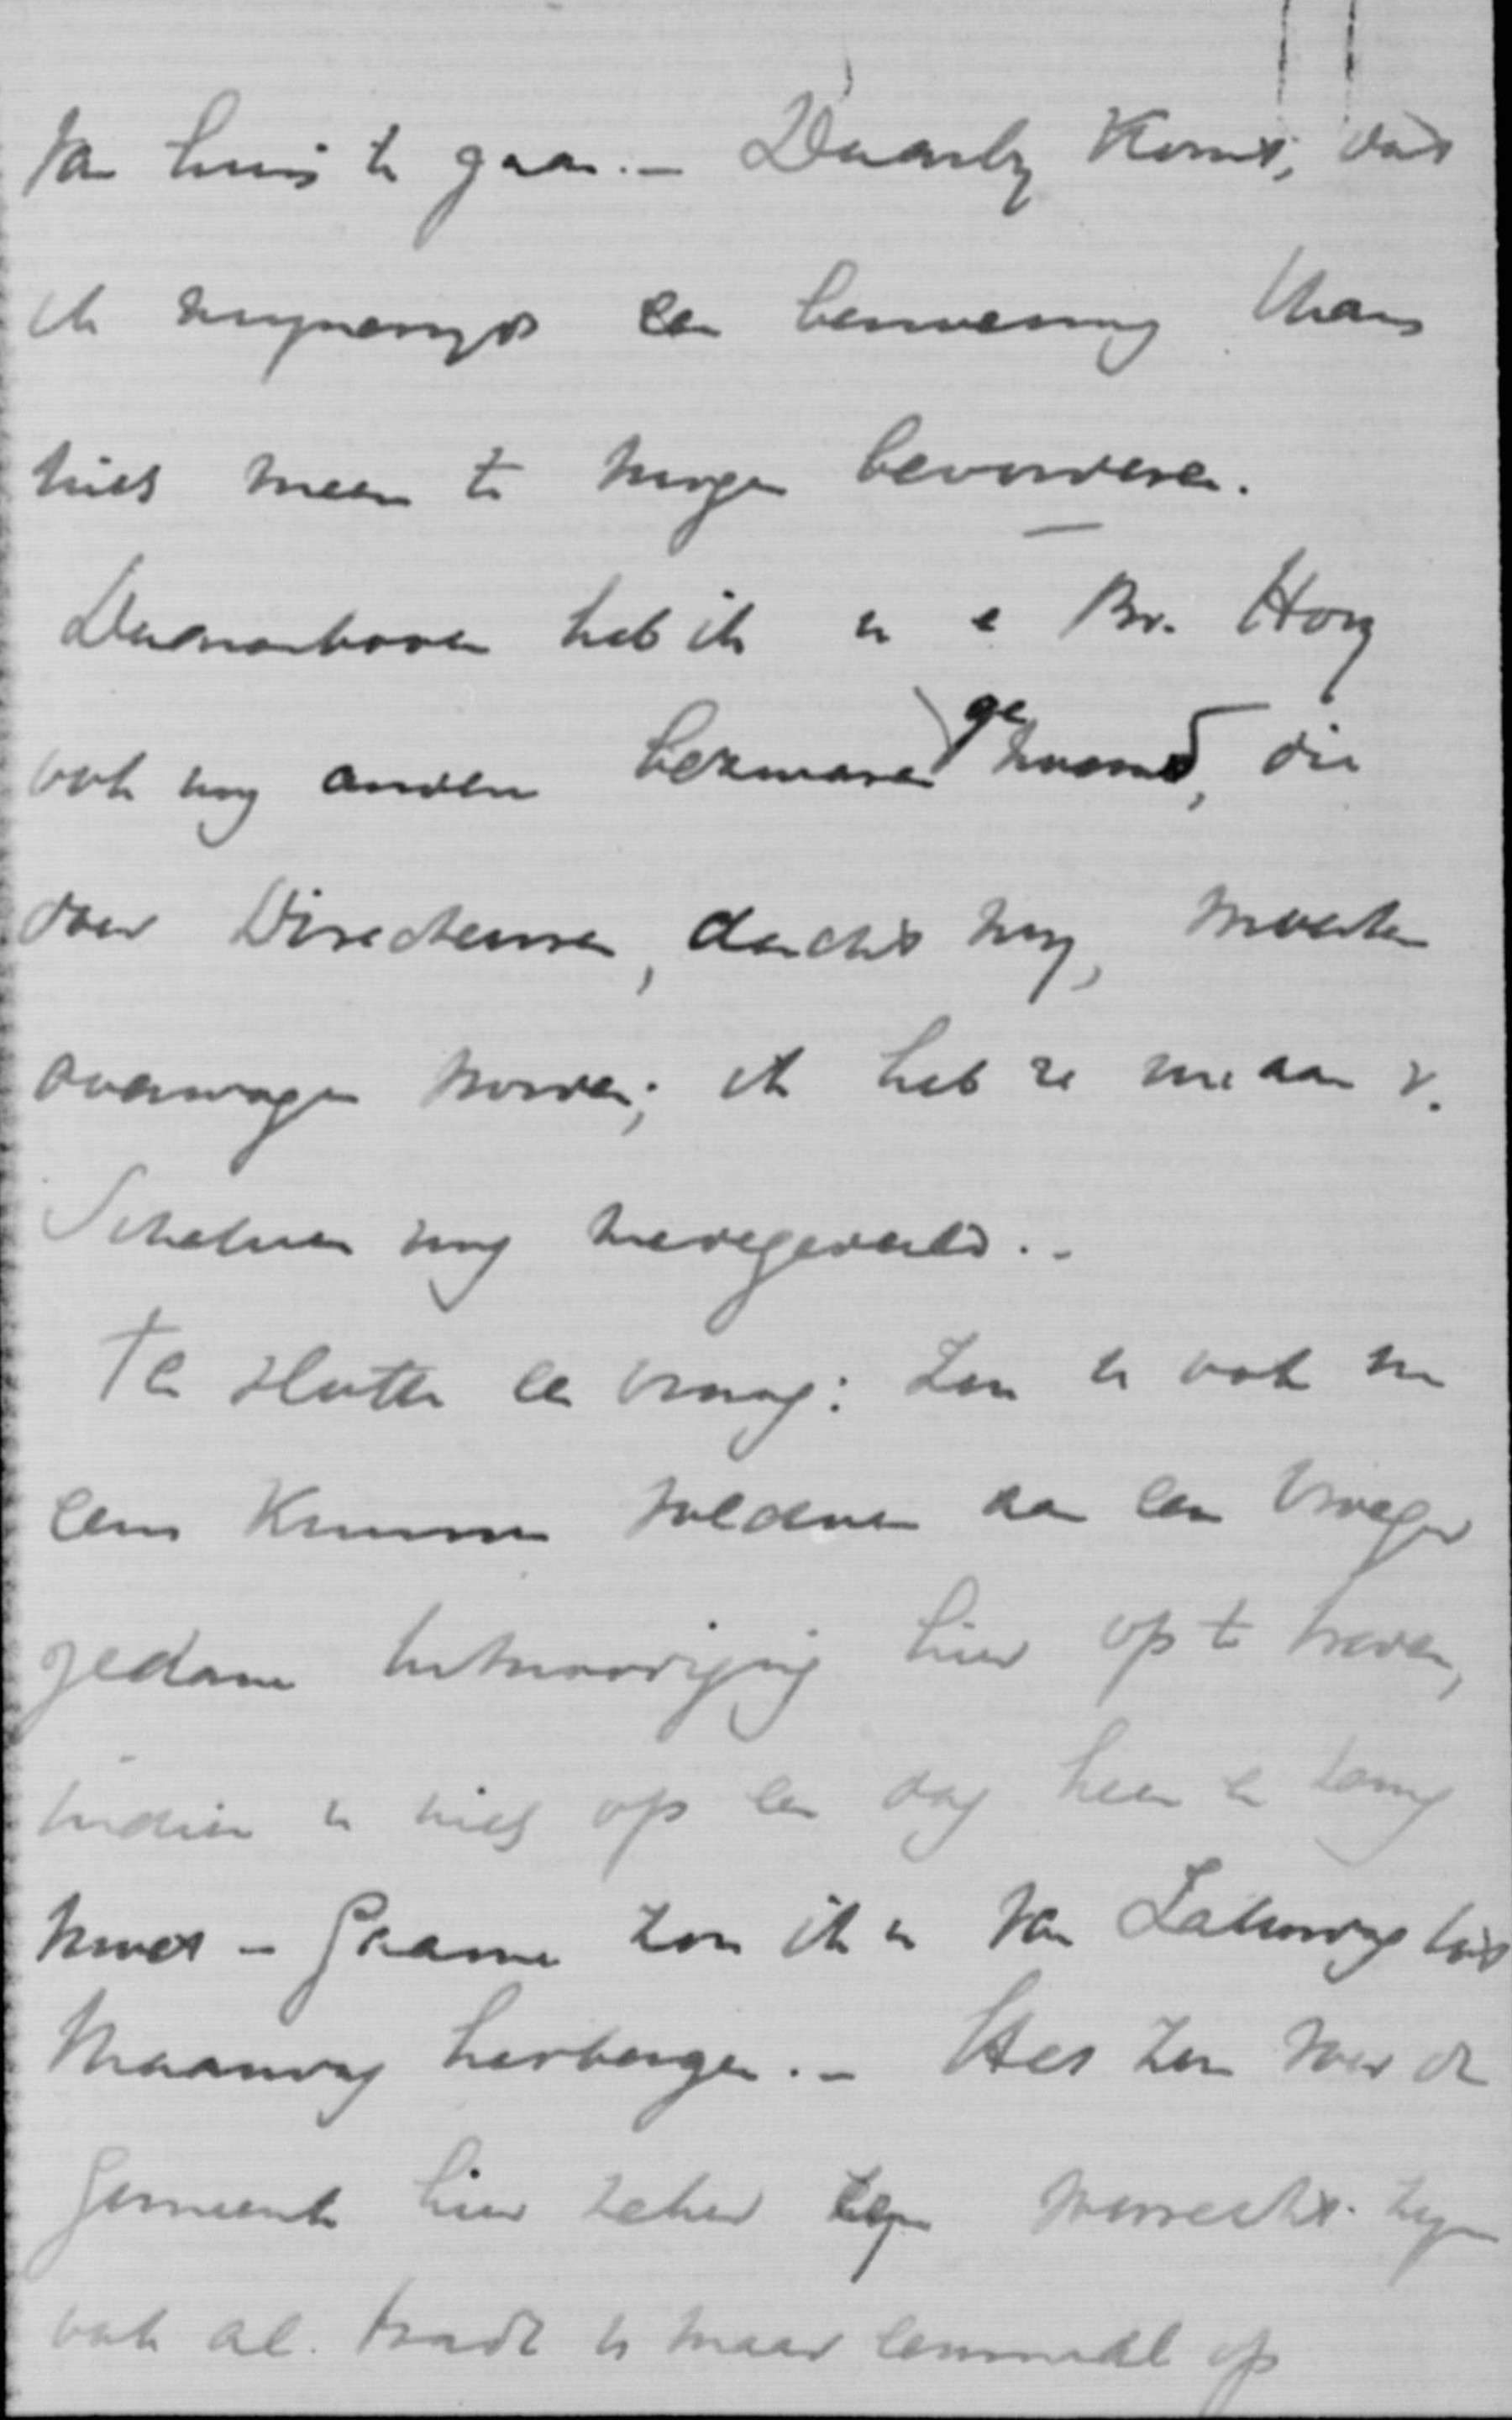 van huis te gaan. – Daarbij komt, dat
ik mijnerzijds een benoeming thans
niet meen te mogen bevorderen.
Daarenboven heb ik u e Br. Hoog
ook nog andere bezwaren genoemd, die
door Directeuren, dacht mij, moesten
overwogen worden; ik heb ze me aan v.
Schelven nog medegedeeld. –
Ten slotte een vraag: Zou u ook nu
eens kunnen voldoen aan een vroeger
gedane uitnoodiging hier op te treden,
indien u niet op een dag heen en terug
moet – Gaarne zou ik u van Zaterdag tot
Maandag herbergen. – Het zou voor de
Gemeente hier zeker zijn
ook al tradt u maar eenmaal op